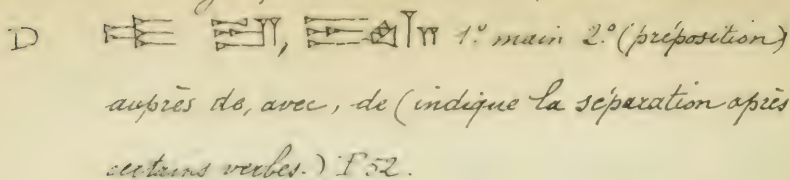 D , 1º main 2º (préposition)
auprès de, avec, de (indique la séparation après
certains verbes.) 52.